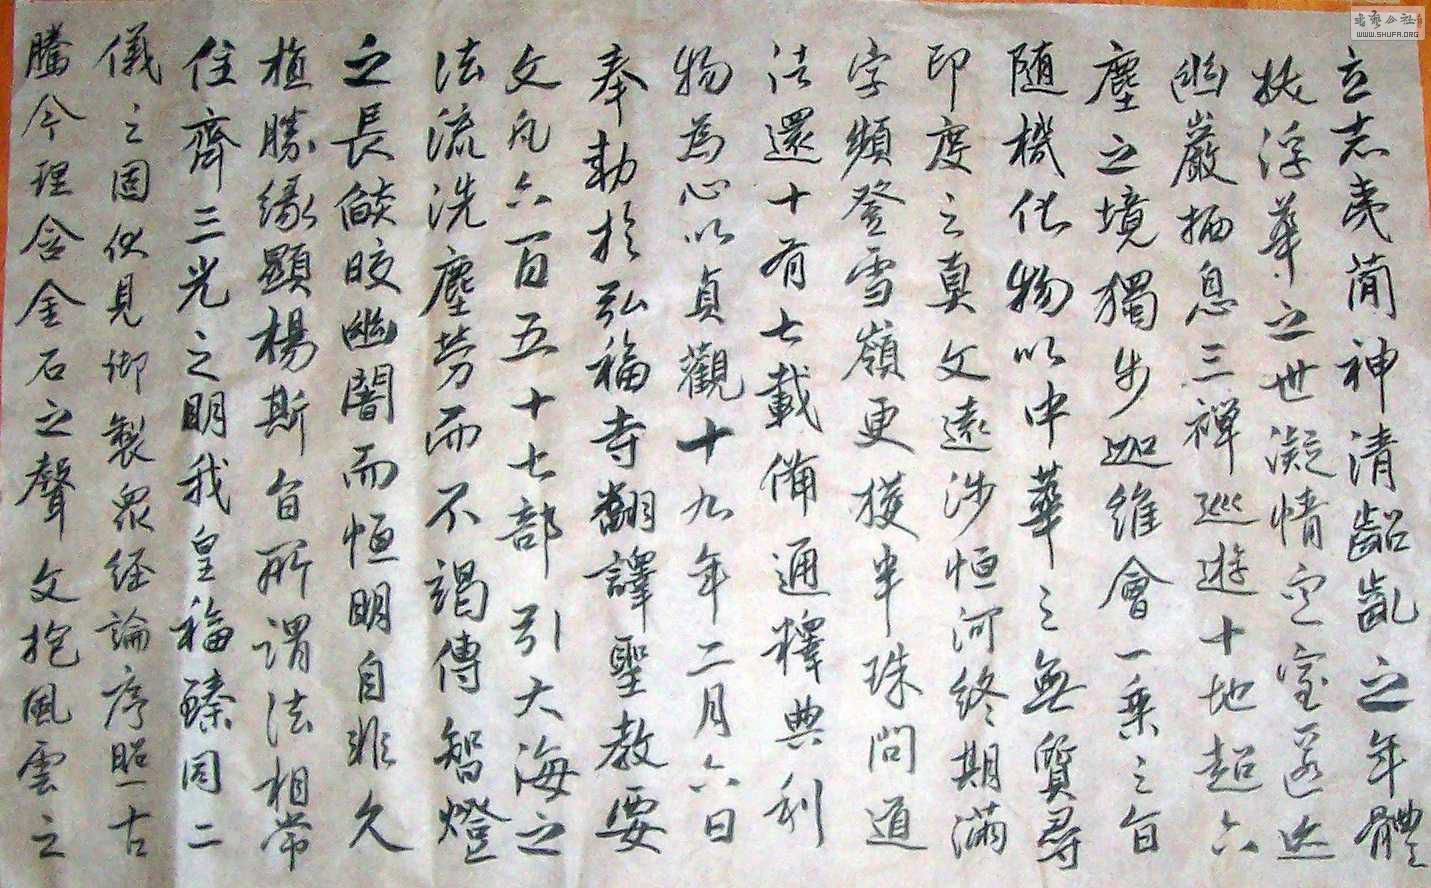 立志夷簡神清齠齔之年體
拔浮華之世凝情定室匿迹
幽巖栖息三禪巡遊十地超六
塵之境獨步迦維會一乘之旨
随機化物以中華之無質尋
印度之真文遠涉恒河終期滿
字頻登雪嶺更獲半珠問道
法還十有七載備通釋典利
物為心以貞觀十九年二月六日
奉勅於弘福寺翻譯聖教要
文凡六百五十七部引大海之
法流洗塵勞而不竭傳智燈
之長燄皎幽闇而恒明自非久
植勝緣顯楊斯旨所謂法相常
住齊三光之明我皇福臻同二
儀之固伏見御製眾经論序照古
騰今理含金石之聲文抱風雲之
書藝公社
WWW.SHUFA.ORG